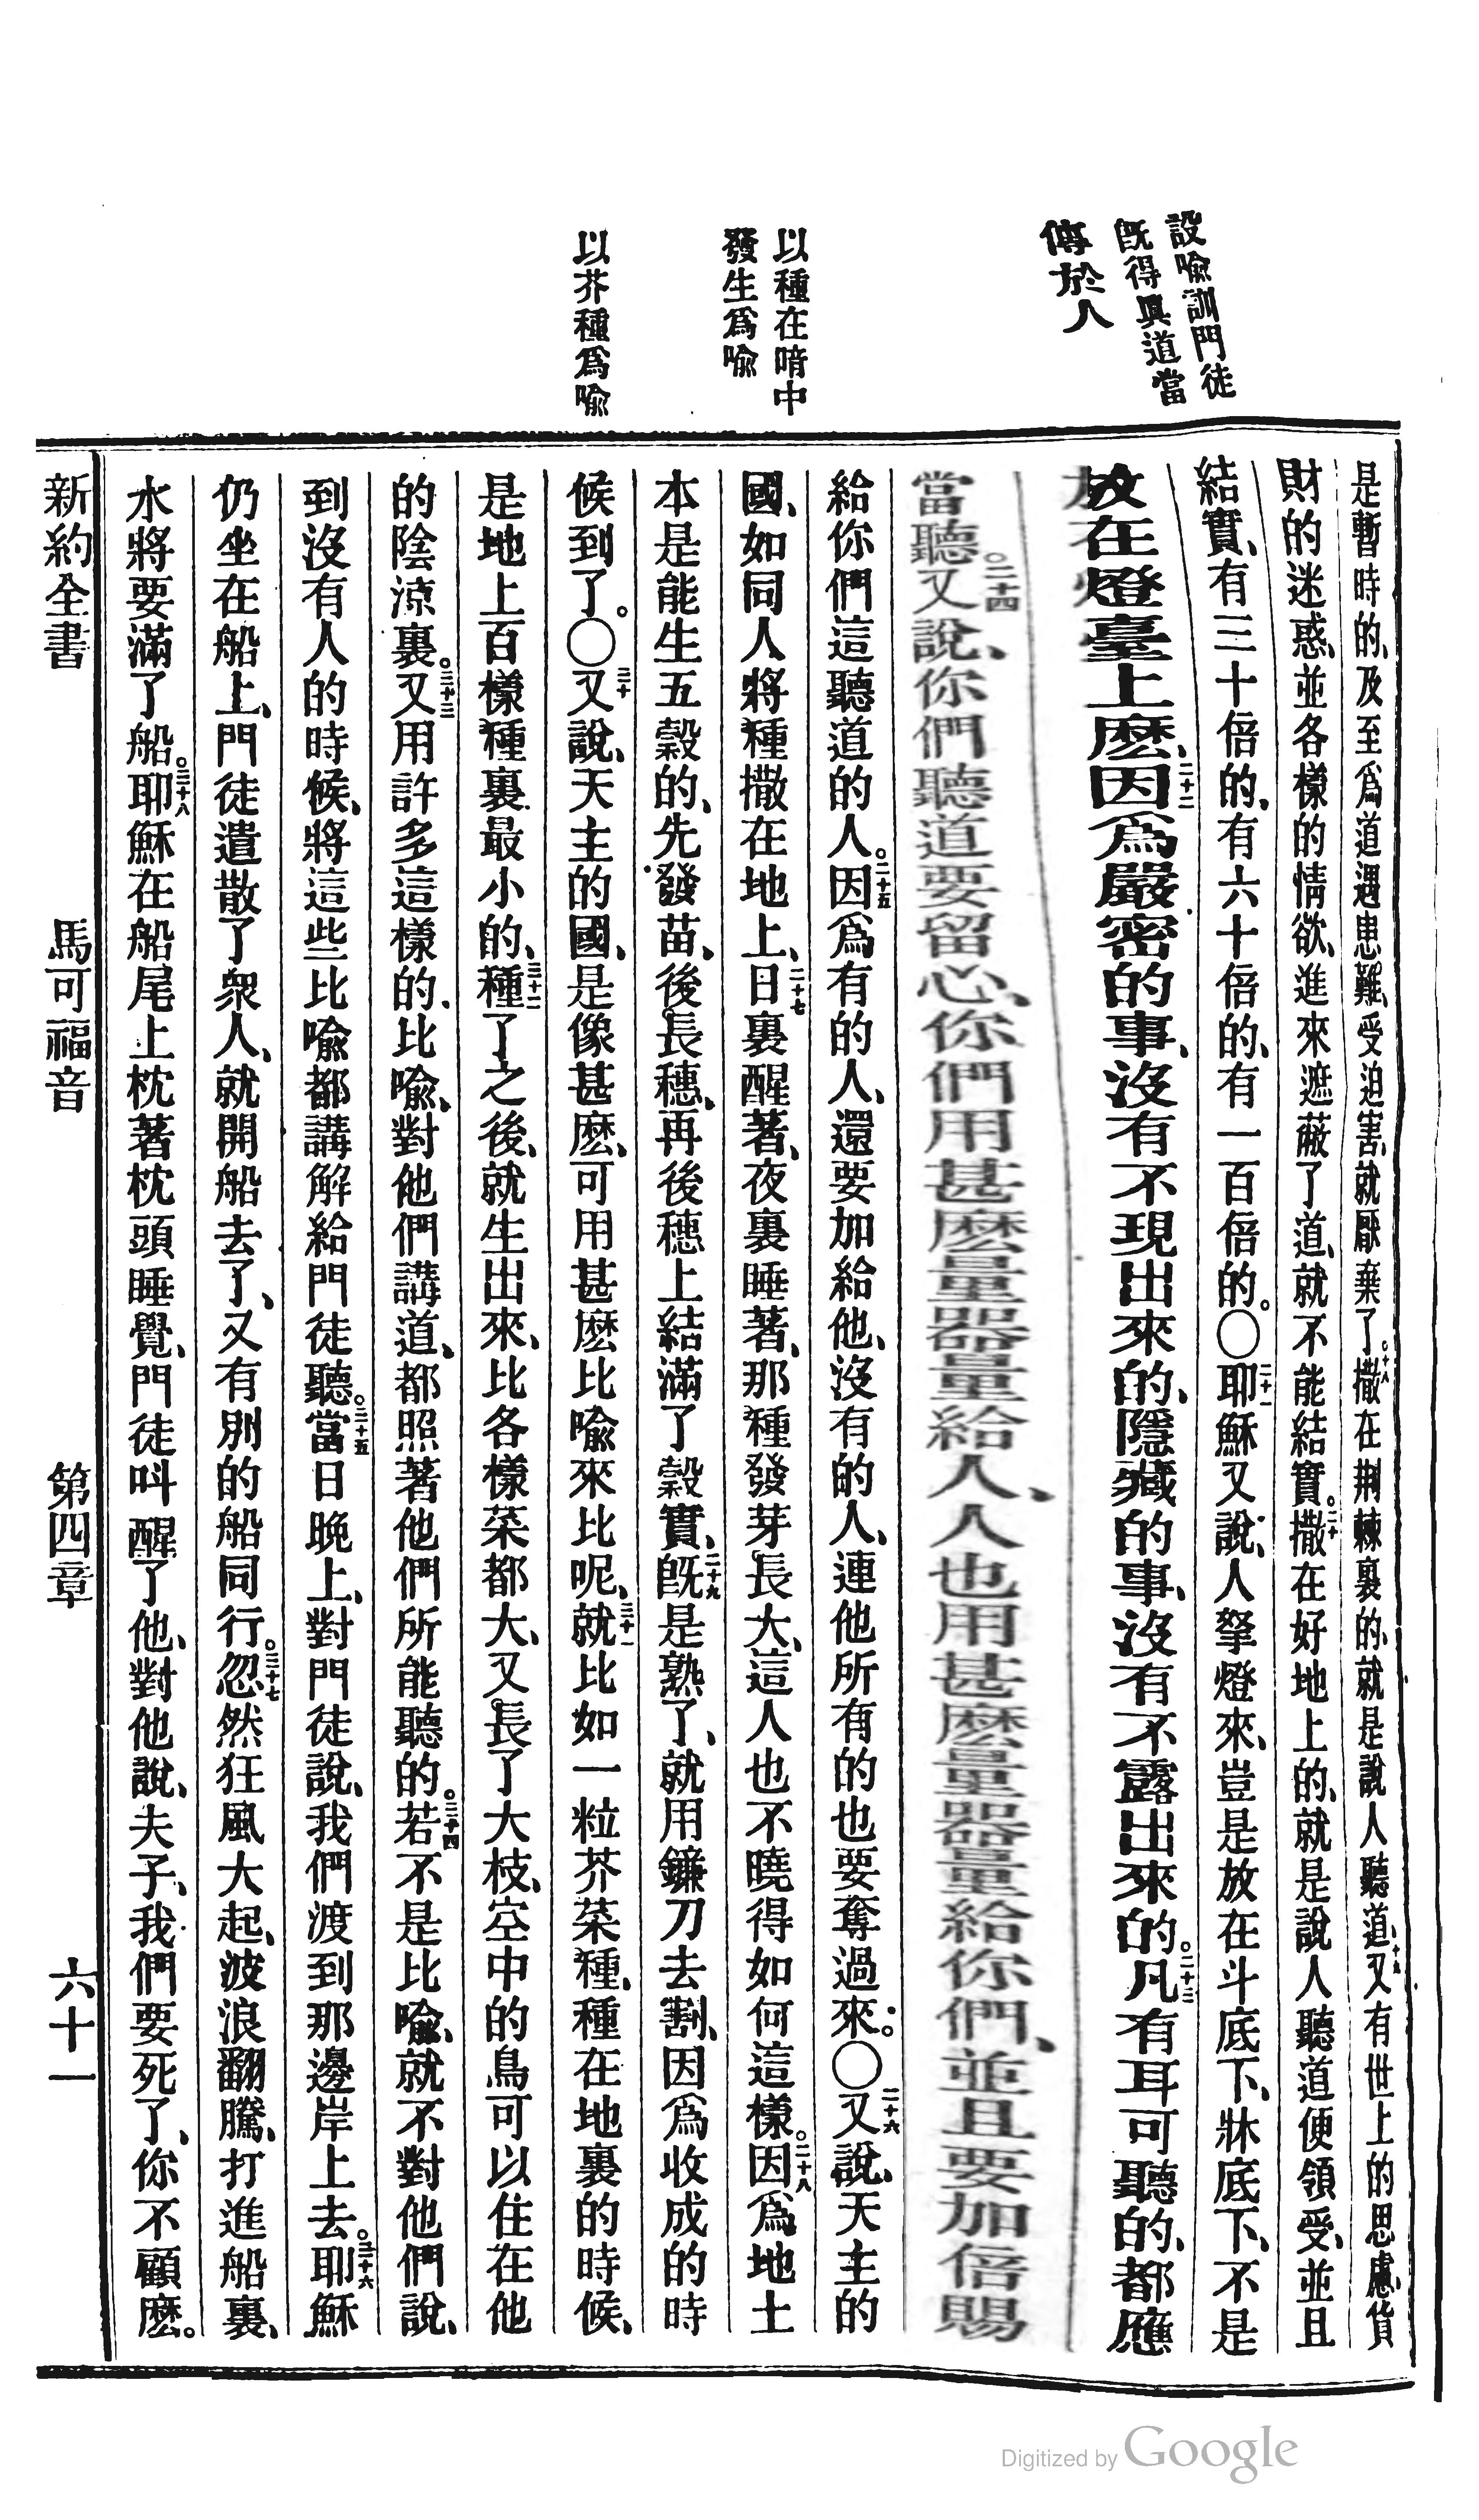 設喻訓門徒
旣得眞道當
傳於人
以種在暗中
發生爲喻
以芥種爲喻
是暫時的、及至爲道遇患難、受迫害、就厭棄了。十八撒在荆棘裏的、就是說人聽道、十九又有世上的思慮、貨
財的迷惑、並各樣的情欲、進來遮蔽了道、就不能結實。二十撒在好地上的、就是說人聽道便領受、並且
結實、有三十倍的、有六十倍的、有一百倍的。〇二十一耶穌又說、人拏燈來、豈是放在斗底下、牀底下、不是
放在燈臺上麽、二十二因爲嚴密的事、沒有不現出來的、隱藏的事、沒有不露出來的。二十三凡有耳可聽的、都應
當聽。二十四又說、你們聽道要留心、你們用甚麽量器量給人、人也用甚麽量器量給你們、並且要加倍賜
給你們這聽道的人。二十五因爲有的人、還要加給他、沒有的人、連他所有的也要奪過來。〇二十六又說、天主的
國、如同人將種撒在地上、二十七日裏醒著、夜裏睡著、那種發芽長大、這人也不曉得如何這樣。二十八因爲地土
本是能生五穀的、先發苗、後長穗、再後穗上結滿了穀實、二十九旣是熟了、就用鐮刀去割、因爲收成的時
候到了。〇三十又說、天主的國、是像甚麽、可用甚麽比喻來比呢、三十一就比如一粒芥菜種、種在地裏的時候、
是地上百樣種裏最小的、三十二種了之後、就生出來、比各樣菜都大、又長了大枝、空中的鳥可以住在他
的陰涼裏。三十三又用許多這樣的比喻、對他們講道、都照著他們所能聽的。三十四若不是比喻、就不對他們說、
到沒有人的時候、將這些比喻都講解給門徒聽。三十五當日晚上、對門徒說、我們渡到那邊岸上去。三十六耶穌
仍坐在船上、門徒遣散了衆人、就開船去了、又有別的船同行。三十七忽然狂風大起、波浪翻騰、打進船裏、
水將要滿了船。三十八耶穌在船尾上枕著枕頭睡覺、門徒叫醒了他、對他說、夫子、我們要死了、你不顧麽。
新約全書 馬可福音 第四章 六十一
Digitized by Google